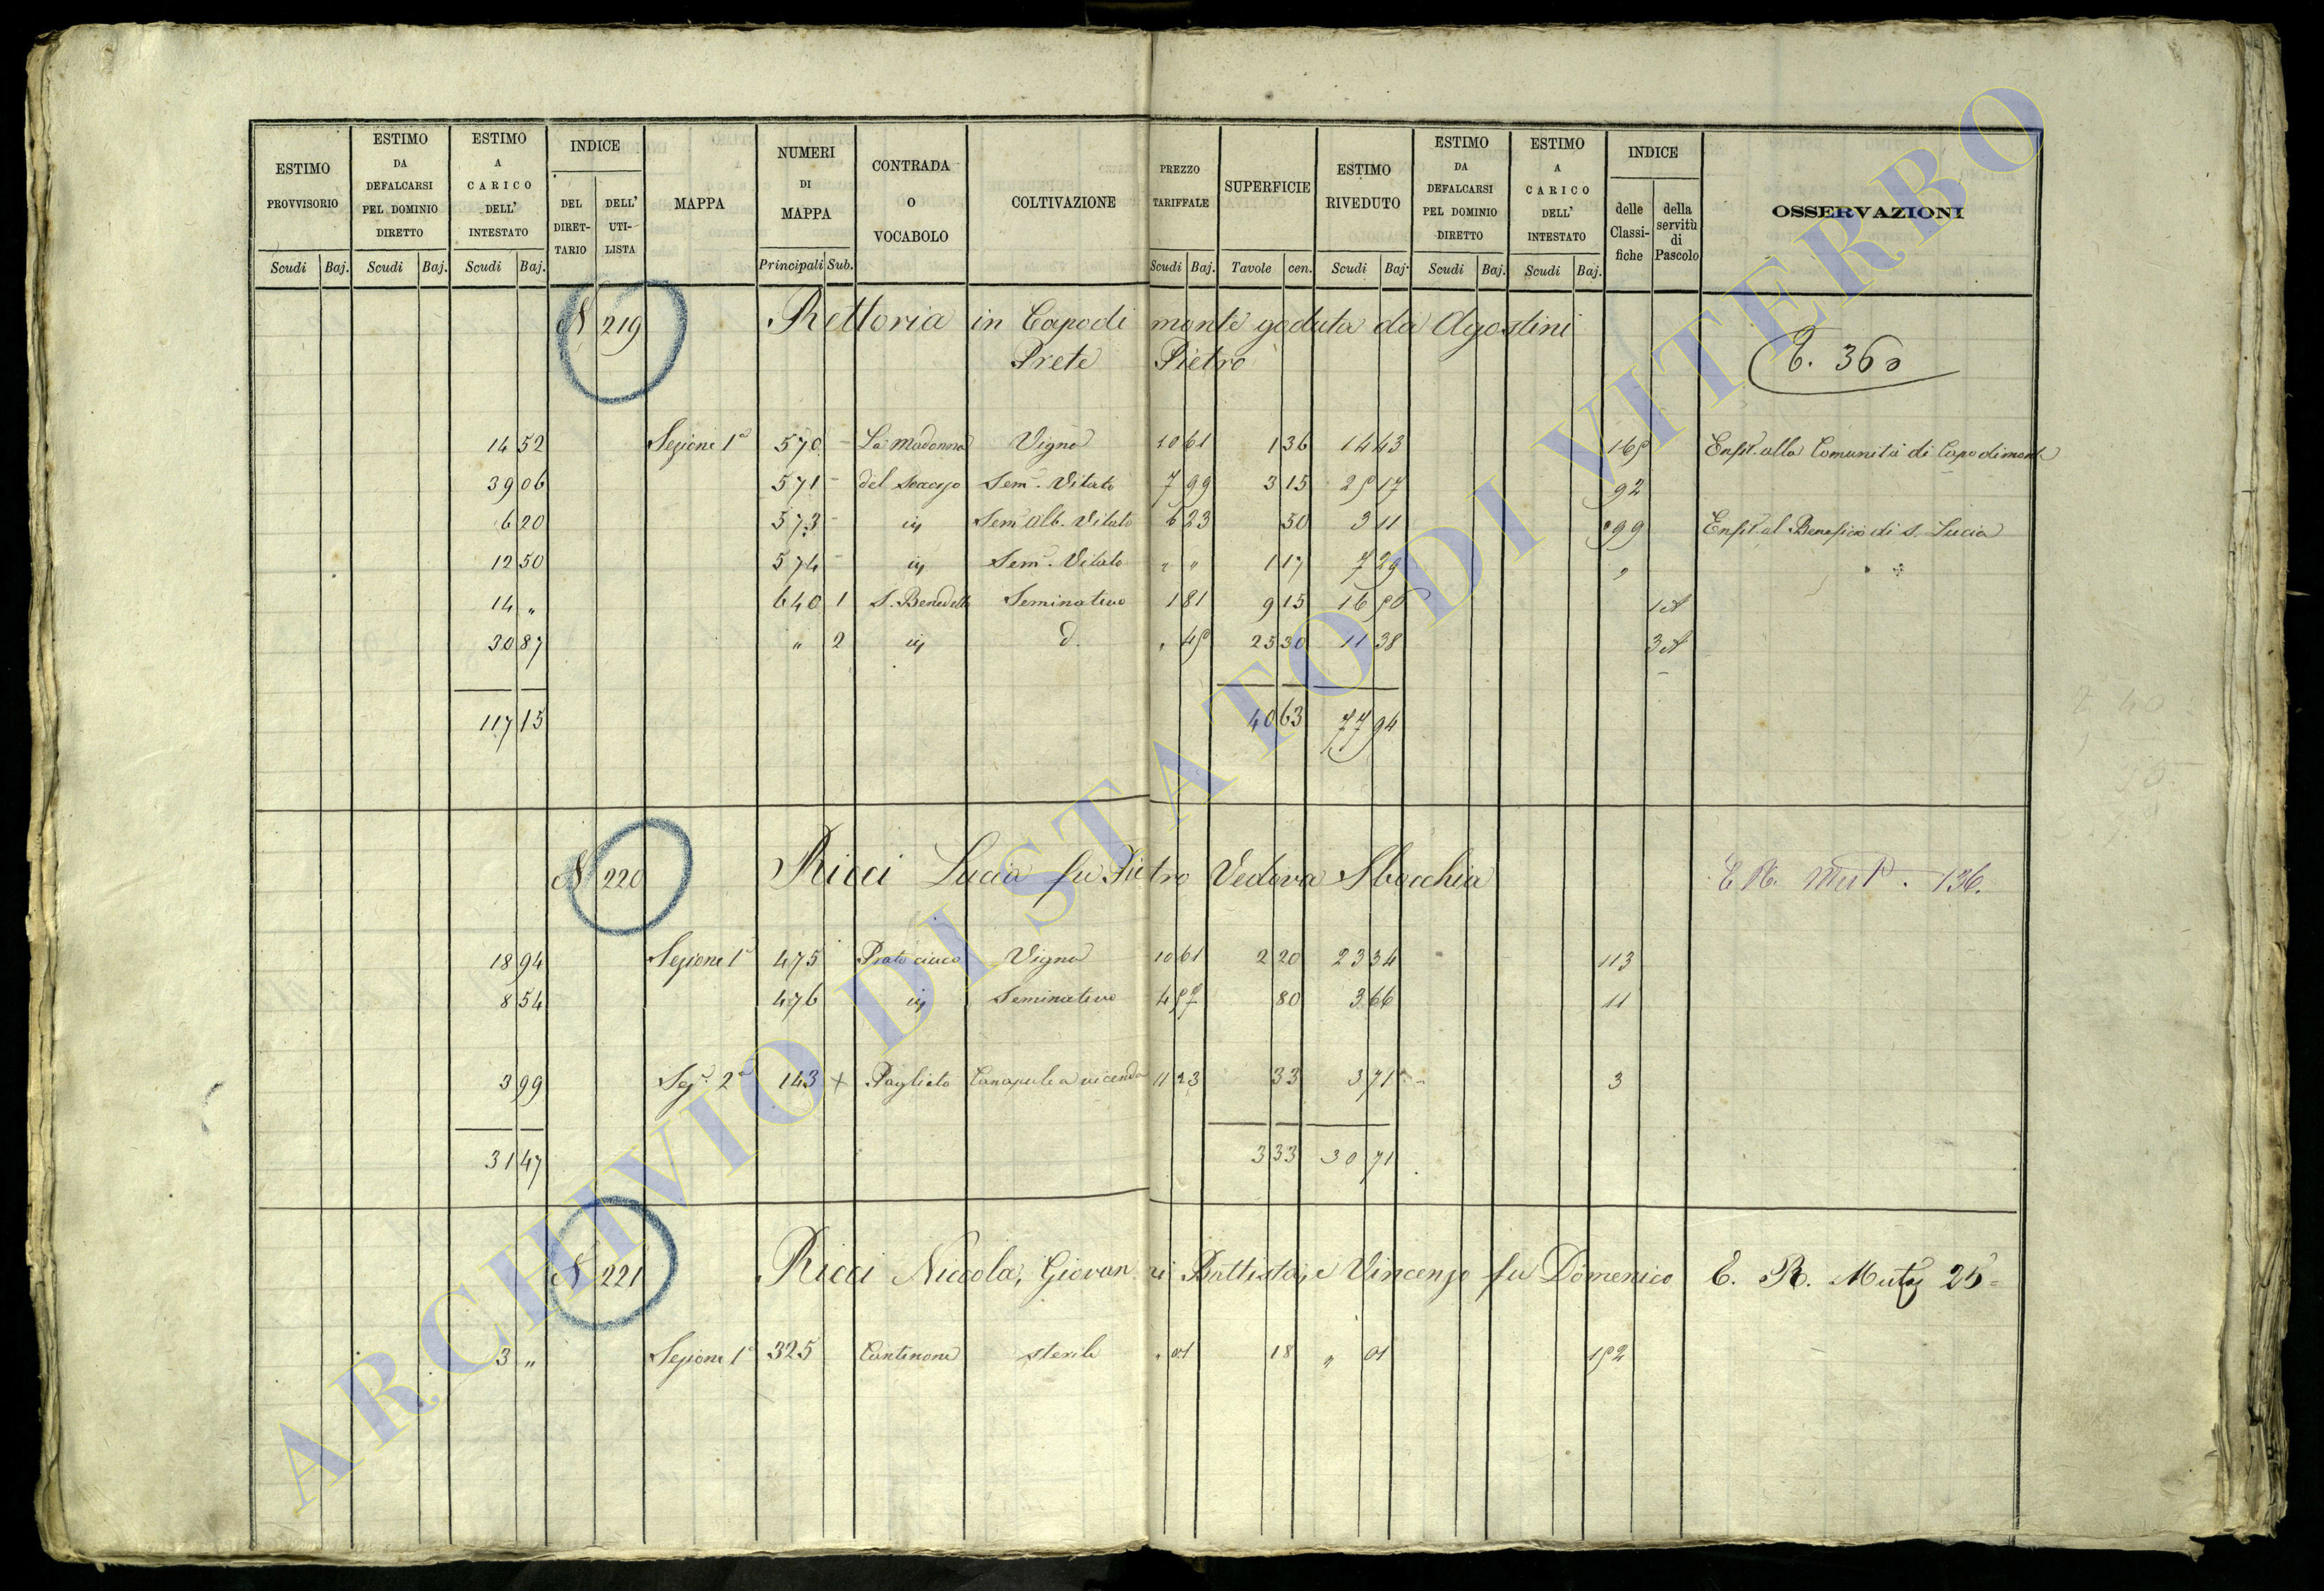 ESTIMO PROVVISORIO ESTIMO DA DEFALCARSI PEL DOMINIO DIRETTO ESTIMO A CARICO DELL' INTESTATO INDICE DEL DIRET- TARIO DELL' UTI- LISTA MAPPA NUMERI DI MAPPA CONTRADA O VOCABOLO COLTIVAZIONE PREZZO TARIFFALE SUPERFICIE ESTIMO RIVEDUTO ESTIMO DA DEFALCARSI PEL DOMINIO DIRETTO ESTIMO A CARICO DELL' INTESTATO INDICE delle Classi- fiche della servitù di Pascolo OSSERVAZIONI
Scudi Baj. Scudi Baj. Scudi Baj. Principali Sub. Scudi Baj. Tavole cen. Scudi Baj. Scudi Baj. Scudi Baj.
N 219 Rettoria in Capodimonte goduta da Agostini
Prete Pietro 360
14 52 Sezione 1a 570 La Madonna Vigna 10 61 1 36 14 43 Enfit. alla Comunità di Capodimonte
39 06 571 del Soccorso Sem. Vitato 7 99 3 15 25 17 92
6 20 573 ivi Sem Alb. Vitato 6 23 50 3 11 Enfit. al Beneficio di S. Lucia
12 50 574 ivi Sem. Vitato " " 1 17 7 29 "
14 " 640 1 S. Benedetto Seminativo 1 81 9 15 16 56 1 A
30 87 " 2 ivi d. " 45 25 30 11 38 3 A
117 15 40 63 77 94
N 220 Ricci Lucia fu Pietro Vedova Sbocchia E R. Mut. 136.
18 94 Sezione 1a 475 Vigna 10 61 2 20 23 34 113
8 54 476 ivi Seminativo 4 57 80 3 66 11
3 99 Sez. 2a 143 + Paglieto Canapule a vicenda 11 23 33 3 71 3
31 47 3 33 30 71
N 221 Ricci Niccola, Giovanni Battista, e Vincenzo fu Domenico E. R. 25
3 " Sezione 1a 325 Cantinone sterile " 01 18 " 01 152
ARCHIVIO DI STATO DI VITERBO